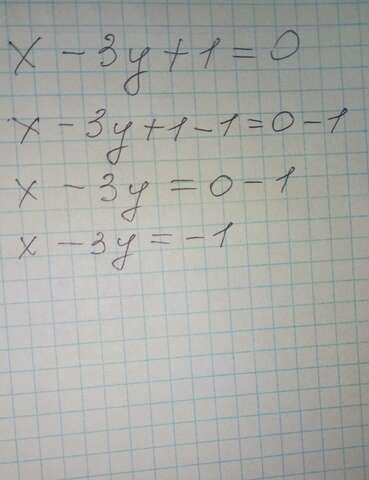 x - 3y + 1 = 0
x - 3y + 1 - 1 = 0 - 1
x - 3y = 0 - 1
x - 3y = - 1